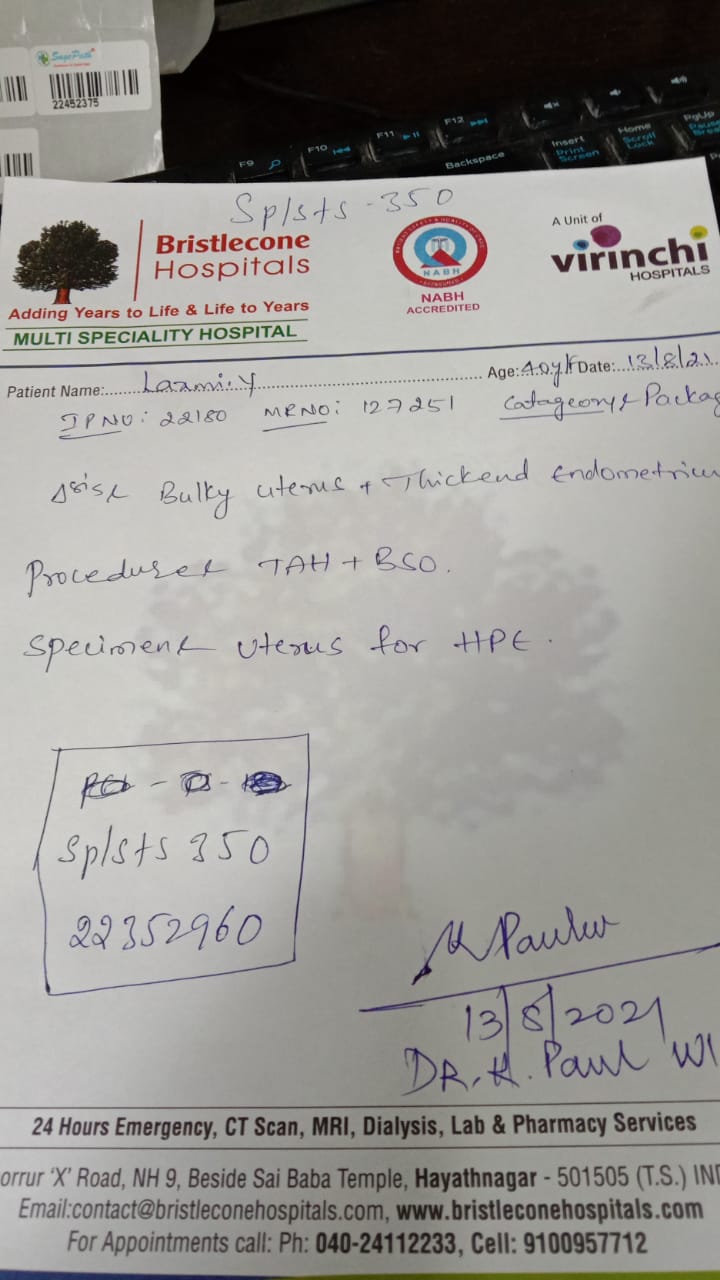 SagePath
22452375
F9
F10
F11
F12
Backspace
Insert
Print
Screen
Home
Scroll
Lock
PgUp
Pause
Sp/sts - 350
Bristlecone
Hospitals
Adding Years to Life & Life to Years
MULTI SPECIALITY HOSPITAL
NABH
NABH
ACCREDITED
A Unit of
virinchi
HOSPITALS
Patient Name: Laxmi.Y Age: 40y/F Date: 13/8/21
IPNO: 22180 MRNO: 127251 Catageory: Packag
Bulky uterus + Thickend Endometrium
TAH + BSO.
uterus for HPE.
Sp/sts 350
22352960
13/8/2021
DR. K. Paul
24 Hours Emergency, CT Scan, MRI, Dialysis, Lab & Pharmacy Services
orrur 'X' Road, NH 9, Beside Sai Baba Temple, Hayathnagar - 501505 (T.S.) IND
Email:contact@bristleconehospitals.com, www.bristleconehospitals.com
For Appointments call: Ph: 040-24112233, Cell: 9100957712